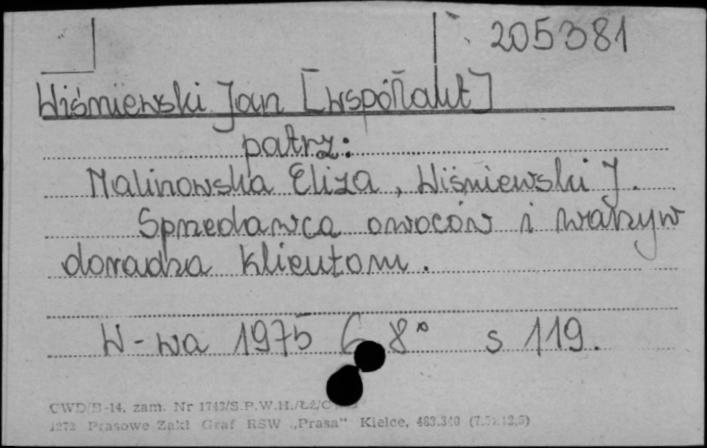 205381
Wiśniewski Jan [współaut]
patrz:
Malinowska Eliza, Wiśniewski J.
Sprzedawca owoców i warzyw
doradza klientom.
W-wa 1975 8° s 119.
CWD/B-14. zam. Nr 1743/S.P.W.H./
1272 Prasowe Zakł Graf RSW „Prasa" Kielce, 483.340 (7.5x12,5)